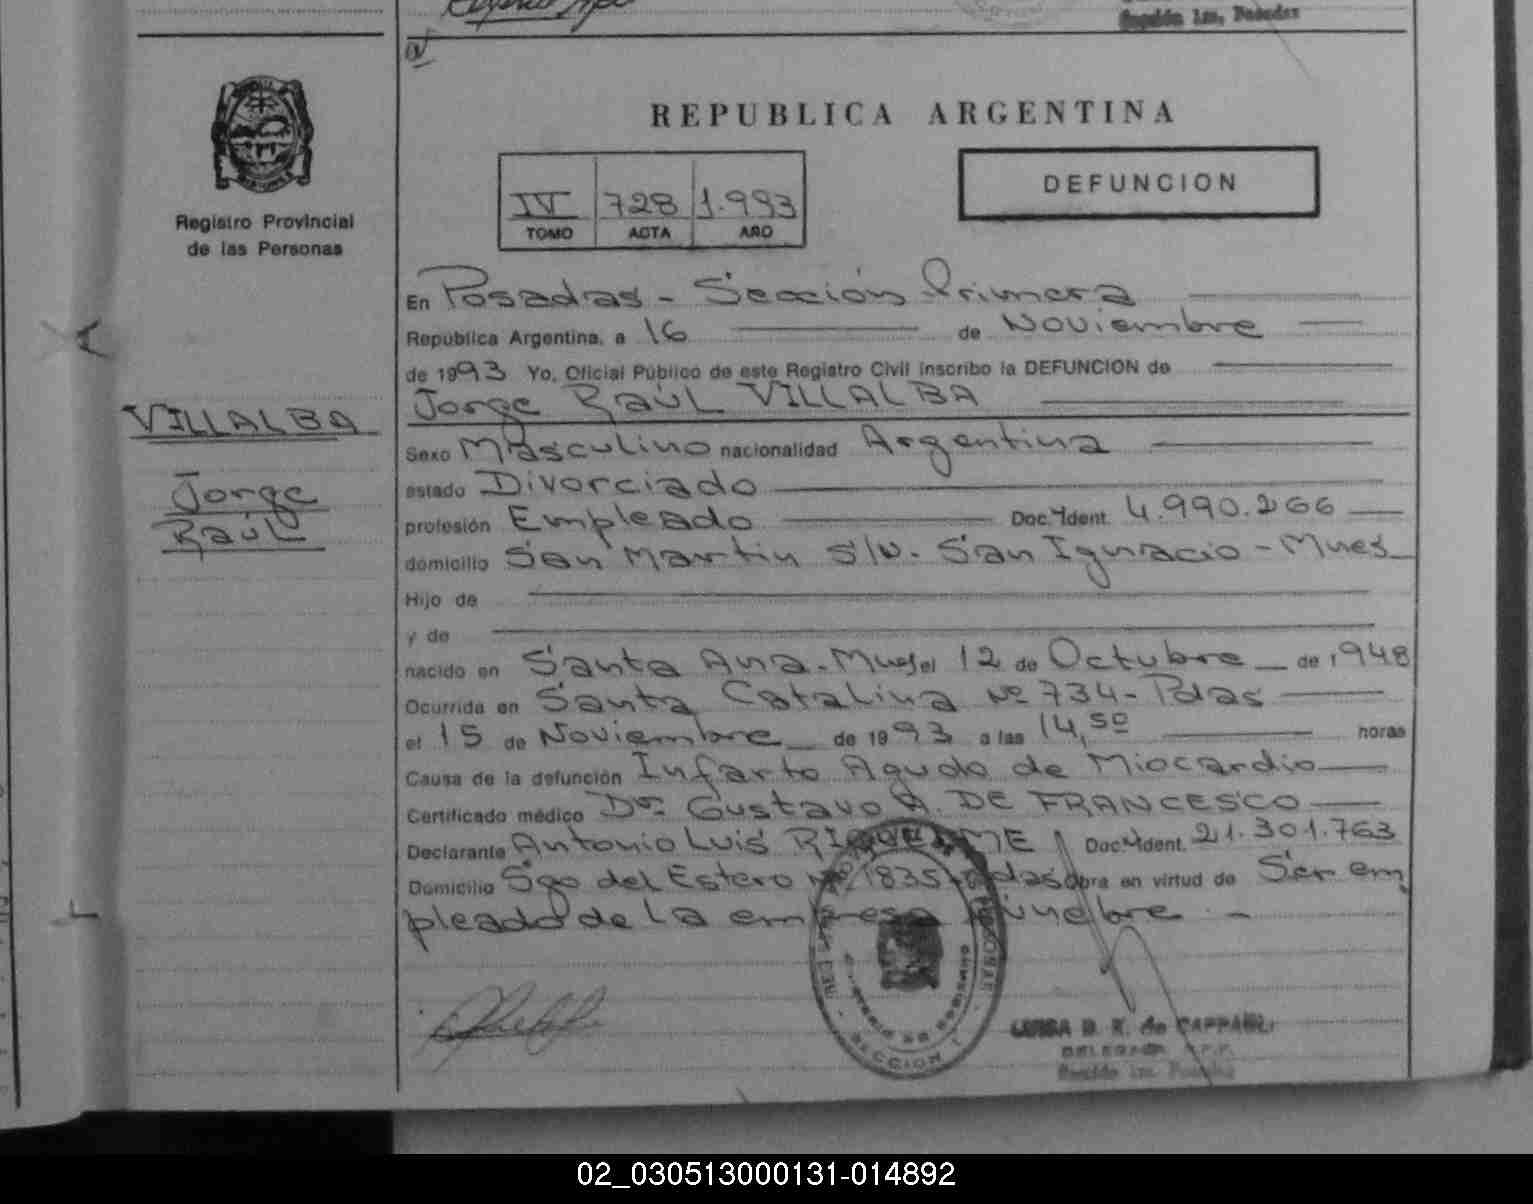 Sección 1ra. Posadas
REPUBLICA ARGENTINA
IV 728 1.993
TOMO ACTA AÑO
DEFUNCION
Registro Provincial
de las Personas
VILLALBA
Jorge
Raúl
En Posadas - Sección Primera
República Argentina, a 16 de Noviembre
de 1993 Yo, Oficial Público de este Registro Civil inscribo la DEFUNCION de
Jorge Raúl VILLALBA
Sexo Masculino nacionalidad Argentina
estado Divorciado
profesión Empleado Doc. Ident. 4.990.266
domicilio San Martin S/N. San Ignacio - Mnes
Hijo de
y de
nacido en Santa Ana - Mnes el 12 de Octubre de 1948
Ocurrida en Santa Catalina Nº 734 - Pdas
el 15 de Noviembre de 1993 a las 14,50 horas
Causa de la defunción Infarto Agudo de Miocardio
Certificado médico Dr. Gustavo A. DE FRANCESCO
Declarante Antonio Luis RIQUELME Doc. Ident. 21.301.763
Domicilio Sgo del Estero Nº 1835 - Pdas obra en virtud de Ser em
pleado de la empresa fúnebre. -
MINISTERIO DE GOBIERNO
SECCION 1
LUISA B. K. de CAPPANLI
DELEGADA R.P.P.
Sección 1ra. Posadas
02_030513000131-014892